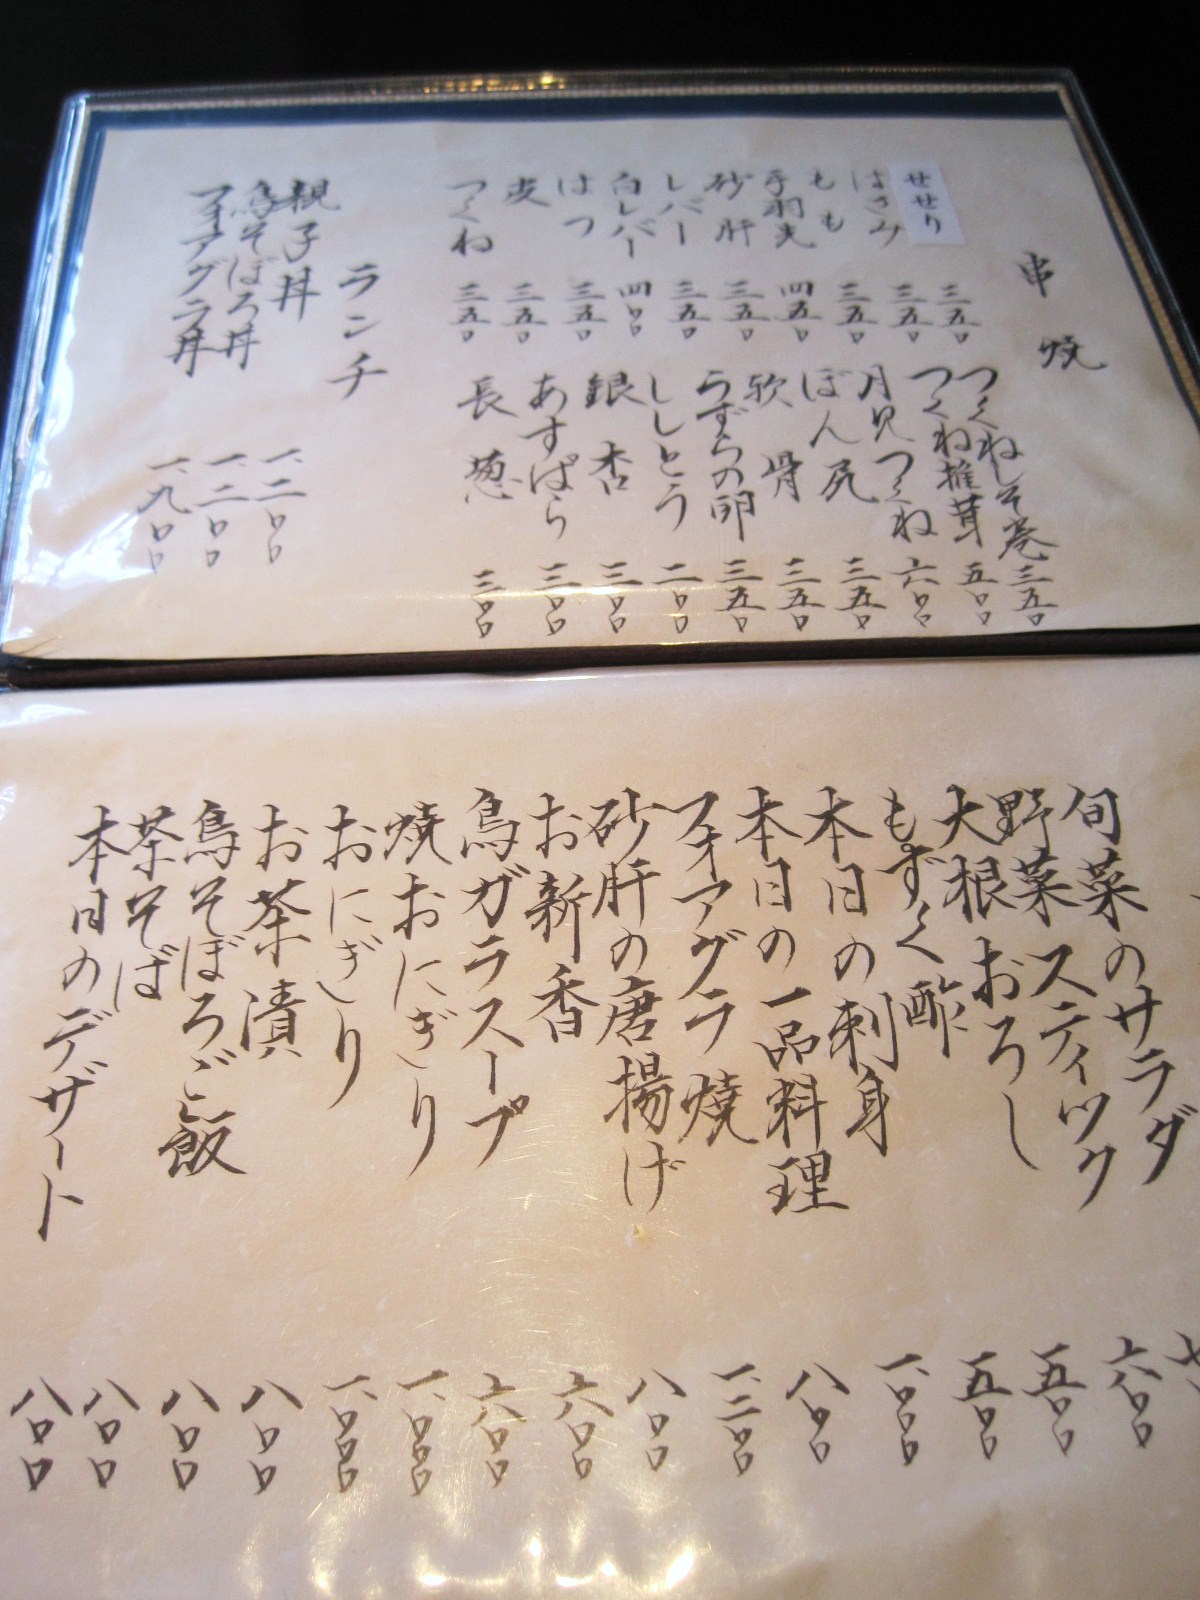 串焼
せせり 三五〇
はさみ 三五〇
もも 三五〇
手羽先 四五〇
砂肝 三五〇
レバー 三五〇
白レバー 四〇〇
はつ 三五〇
皮 三五〇
つくね 三五〇
つくねしそ巻 三五〇
つくね椎茸 五〇〇
月見つくね 六〇〇
ぼん尻 三五〇
軟骨 三五〇
うずらの卵 三五〇
ししとう 二〇〇
銀杏 三〇〇
あすぱら 三〇〇
長葱 三〇〇
ランチ
親子丼 一、二〇〇
鳥そぼろ丼 一、二〇〇
フォアグラ丼 一、九〇〇
旬菜のサラダ
野菜スティック 六〇〇
大根おろし 五〇〇
もずく酢 五〇〇
本日の刺身 一、〇〇〇
本日の一品料理 八〇〇
フォアグラ焼 一、三〇〇
砂肝の唐揚げ 八〇〇
お新香 六〇〇
鳥ガラスープ 六〇〇
焼おにぎり 一、〇〇〇
おにぎり 一、〇〇〇
お茶漬 八〇〇
鳥そぼろご飯 八〇〇
茶そば 八〇〇
本日のデザート 八〇〇